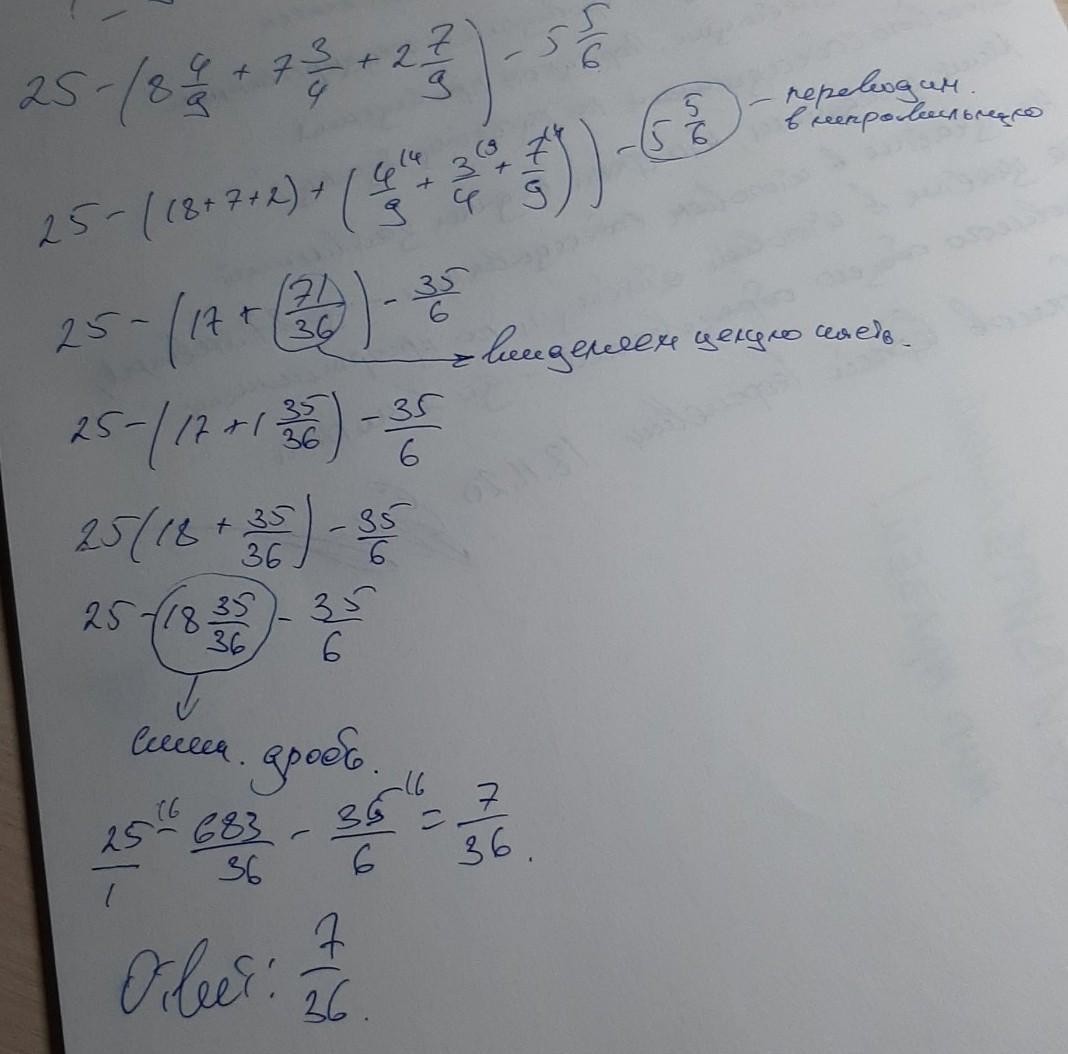 25 - (8 4/9 + 7 3/4 + 2 7/9) - 5 5/6
25 - ((8+7+2) + (4/9 (4 + 3/4 (9 + 7/9 (4)) - 5 5/6 - переводим.
в неправильную
25 - (17 + (71/36)) - 35/6
выделяем целую часть.
25 - (17 + 1 35/36) - 35/6
25 (18 + 35/36) - 35/6
25 - 18 35/36 - 35/6
смеш. дробь.
25/1 (6 - 683/36 - 35/6 (6 = 7/36.
Ответ: 7/36.